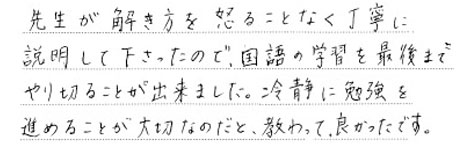 先生が解き方を怒ることなく丁寧に
説明して下さったので、国語の学習を最後まで
やり切ることが出来ました。冷静に勉強を
進めることが大切なのだと、教わって、良かったです。